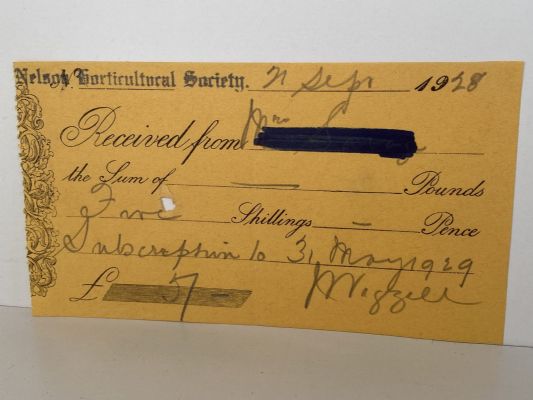 Nelson Horticultural Society. 21 Sept 1928
Received from Mrs
the Sum of — Pounds
Five Shillings — Pence
Subscription to 31 May 1929
£ 5/-